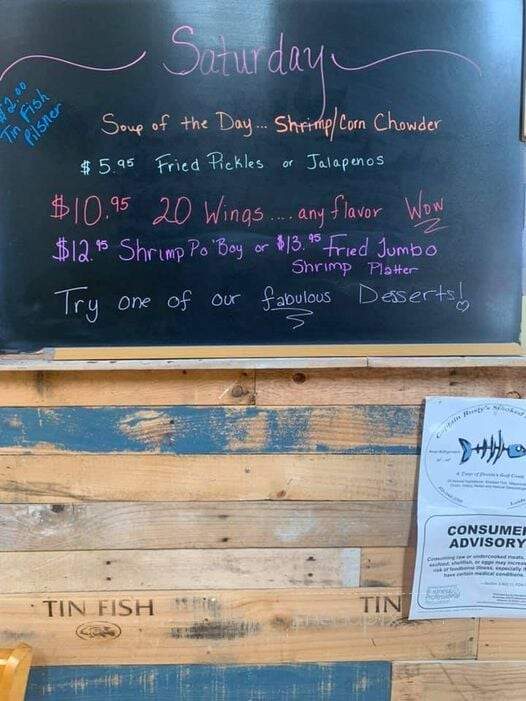 Saturday
$2.00
Tin Fish
Pilsner
Soup of the Day... Shrimp/Corn Chowder
$5.95 Fried Pickles or Jalapenos
$10.95 20 Wings .... any flavor Wow
$12.95 Shrimp Po'Boy or $13.95 Fried Jumbo
Shrimp Platter
Try one of our fabulous Desserts!
Captain Rusty's Smoked
A Taste of Florida's Gulf Coast
CONSUMER
ADVISORY
Consuming raw or undercooked meats,
seafood, shellfish, or eggs may increase
risk of foodborne illness, especially if
have certain medical conditions.
TIN FISH
TIN